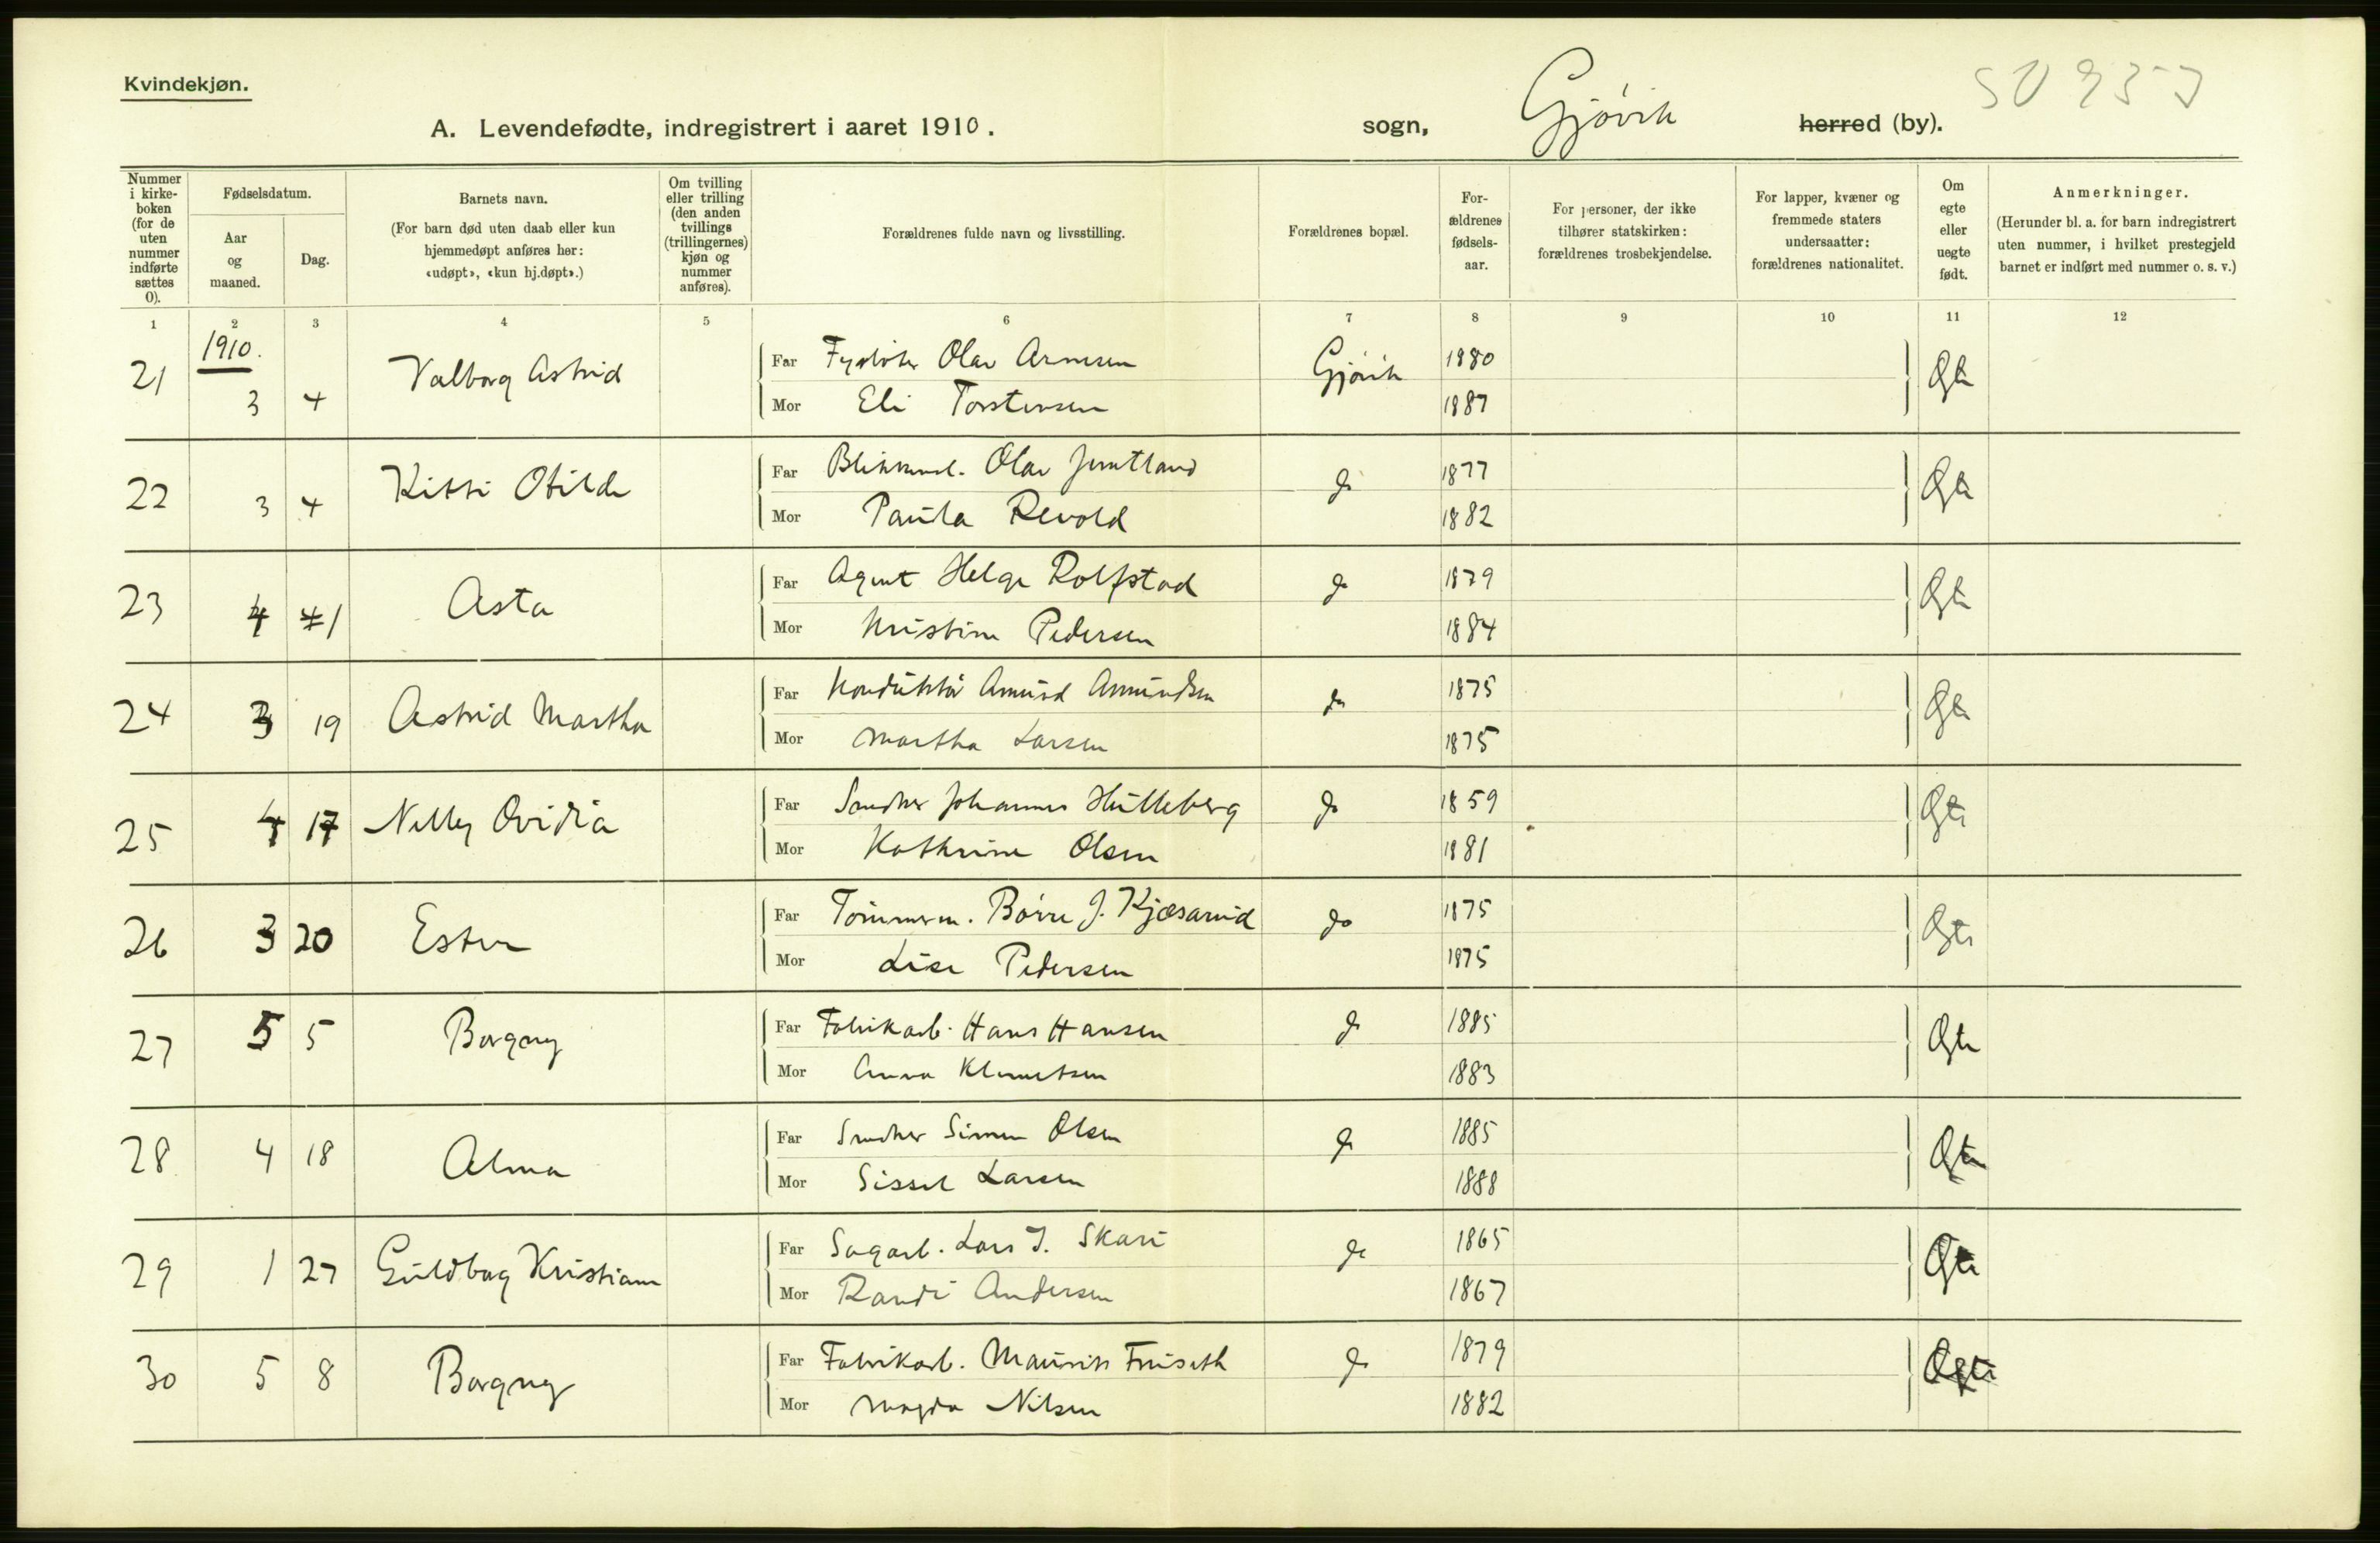 Kvindekjøn.
A. Levendefødte, indregistrert i aaret 1910.
sogn, Gjøvik herred (by).
Nummer i kirkeboken (for de uten nummer indførte sættes 0).
Fødselsdatum.
Aar og maaned.
Dag.
Barnets navn.
(For barn død uten daab eller kun hjemmedøpt anføres her: «udøpt», «kun hj.døpt».)
Om tvilling eller trilling (den anden tvillings (trillingernes) kjøn og nummer anføres).
Forældrenes fulde navn og livsstilling.
Forældrenes bopæl.
Forældrenes fødselsaar.
For personer, der ikke tilhører statskirken: forældrenes trosbekjendelse.
For lapper, kvæner og fremmede staters undersaatter: forældrenes nationalitet.
Om egte eller uegte født.
Anmerkninger.
(Herunder bl. a. for barn indregistrert uten nummer, i hvilket prestegjeld barnet er indført med nummer o. s. v.)
1 2 3 4 5 6 7 8 9 10 11 12
1910.
21 3 4 Valborg Astrid Far Olav Arnesen Gjøvik 1880 Egte
Mor Eli Torstensen 1887
22 3 4 Kitti Otilde Far Olav Jemtland do 1877 Egte
Mor Paula Revold 1882
23 4 1 Asta Far Agent Helge Rolfstad do 1879 Egte
Mor Kristine Pedersen 1884
24 3 19 Astrid Martha Far Konduktør Amund Amundsen do 1875 Egte
Mor Martha Larsen 1875
25 4 17 Nelly Ovidia Far Snedker Johannes Hulleberg do 1859 Egte
Mor Kathrine Olsen 1881
26 3 20 Ester Far Tømmerm. Børre J. do 1875 Egte
Mor Lise Pedersen 1875
27 5 5 Borgny Far Fabrikarb. Hans Hansen do 1885 Egte
Mor Anna Klemetsen 1883
28 4 18 Alma Far Snedker Simen Olsen do 1885 Egte
Mor Sissel Larsen 1888
29 1 27 Guldborg Kristiane Far Sagarb. Lars J. Skari do 1865 Egte
Mor Randi Andersen 1867
30 5 8 Borgny Far Fabrikarb. Mauritz Fruseth do 1879 Egte
Mor Magda Nilsen 1882